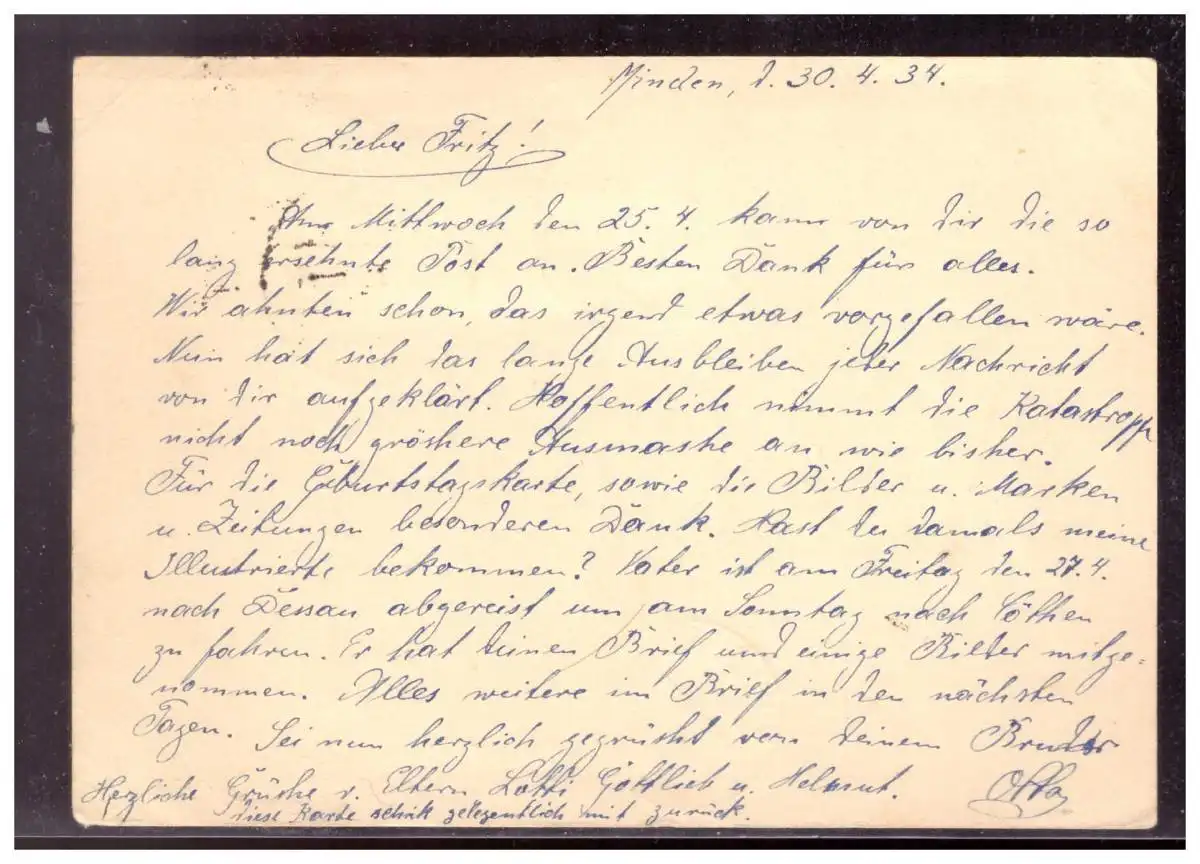 Minden, d. 30. 4. 34.
Lieber Fritz!
Am Mittwoch den 25. 4. kam von dir die so
lang ersehnte Post an. Besten Dank für alles.
Wir ahnten schon, das irgend etwas vorgefallen wäre.
Nun hat sich das lange Ausbleiben jeder Nachricht
von dir aufgeklärt. Hoffentlich nimmt die Katastrophe
nicht noch gröshere Ausmashe an wie bisher.
Für die Geburtstagskarte, sowie die Bilder u. Marken
u. Zeitungen besonderen Dank. Hast du damals meine
Illustrierte bekommen? Vater ist am Freitag den 27. 4.
nach Dessau abgereist um am Sonntag nach Cöthen
zu fahren. Er hat deinen Brief und einige Bilder mitge=
nommen. Alles weitere im Brief in den nächsten
Tagen. Sei nun herzlich gegrüsht von deinem Bruder
Otto
Herzliche Grüshe v. Eltern Lotti Gottlieb u. Helmut.
diese Karte schik gelegentlich mit zurück.